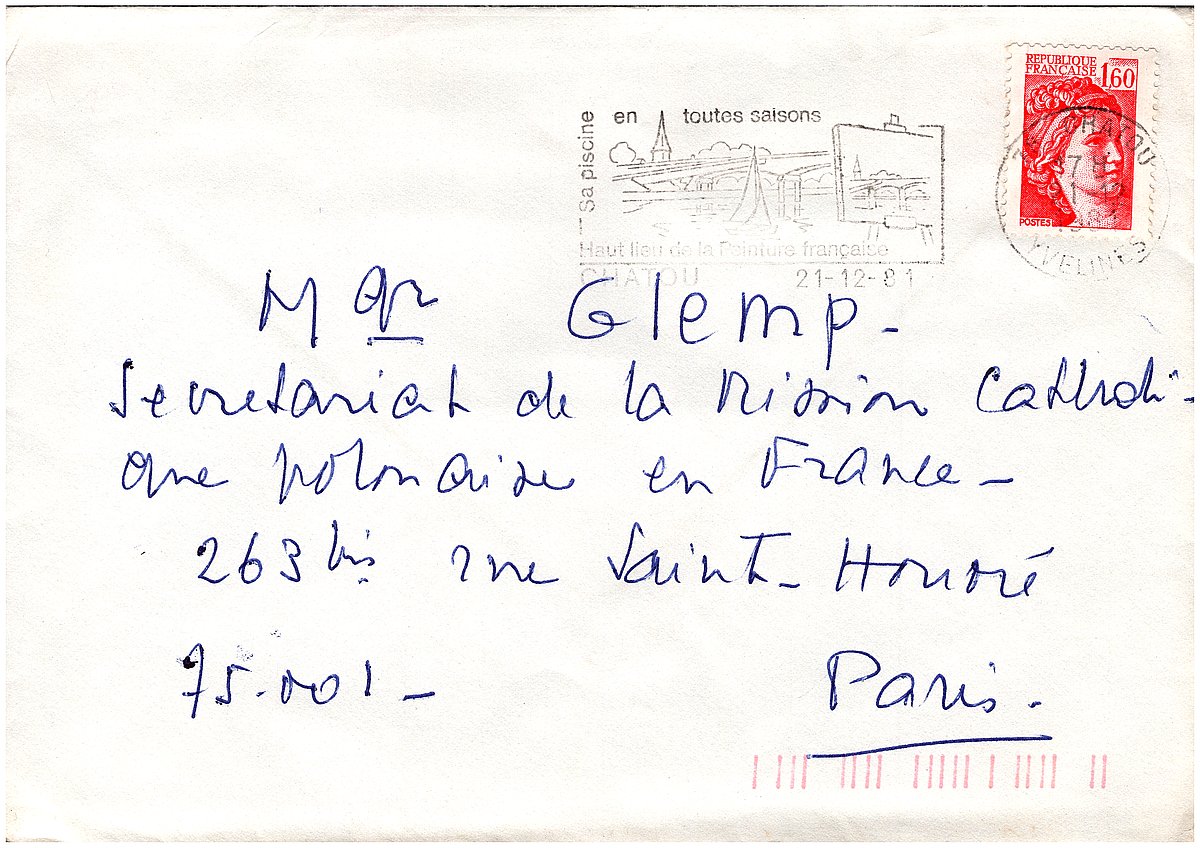 REPUBLIQUE
FRANÇAISE 1,60
POSTES
CHATOU
YVELINES
Sa piscine en toutes saisons
Haut lieu de la Peinture française
CHATOU 21-12-81
Mgr Glemp.
Secretariat de la Mission Catholi-
que polonaise en France -
263 bis rue Saint-Honoré
75.001 - Paris.